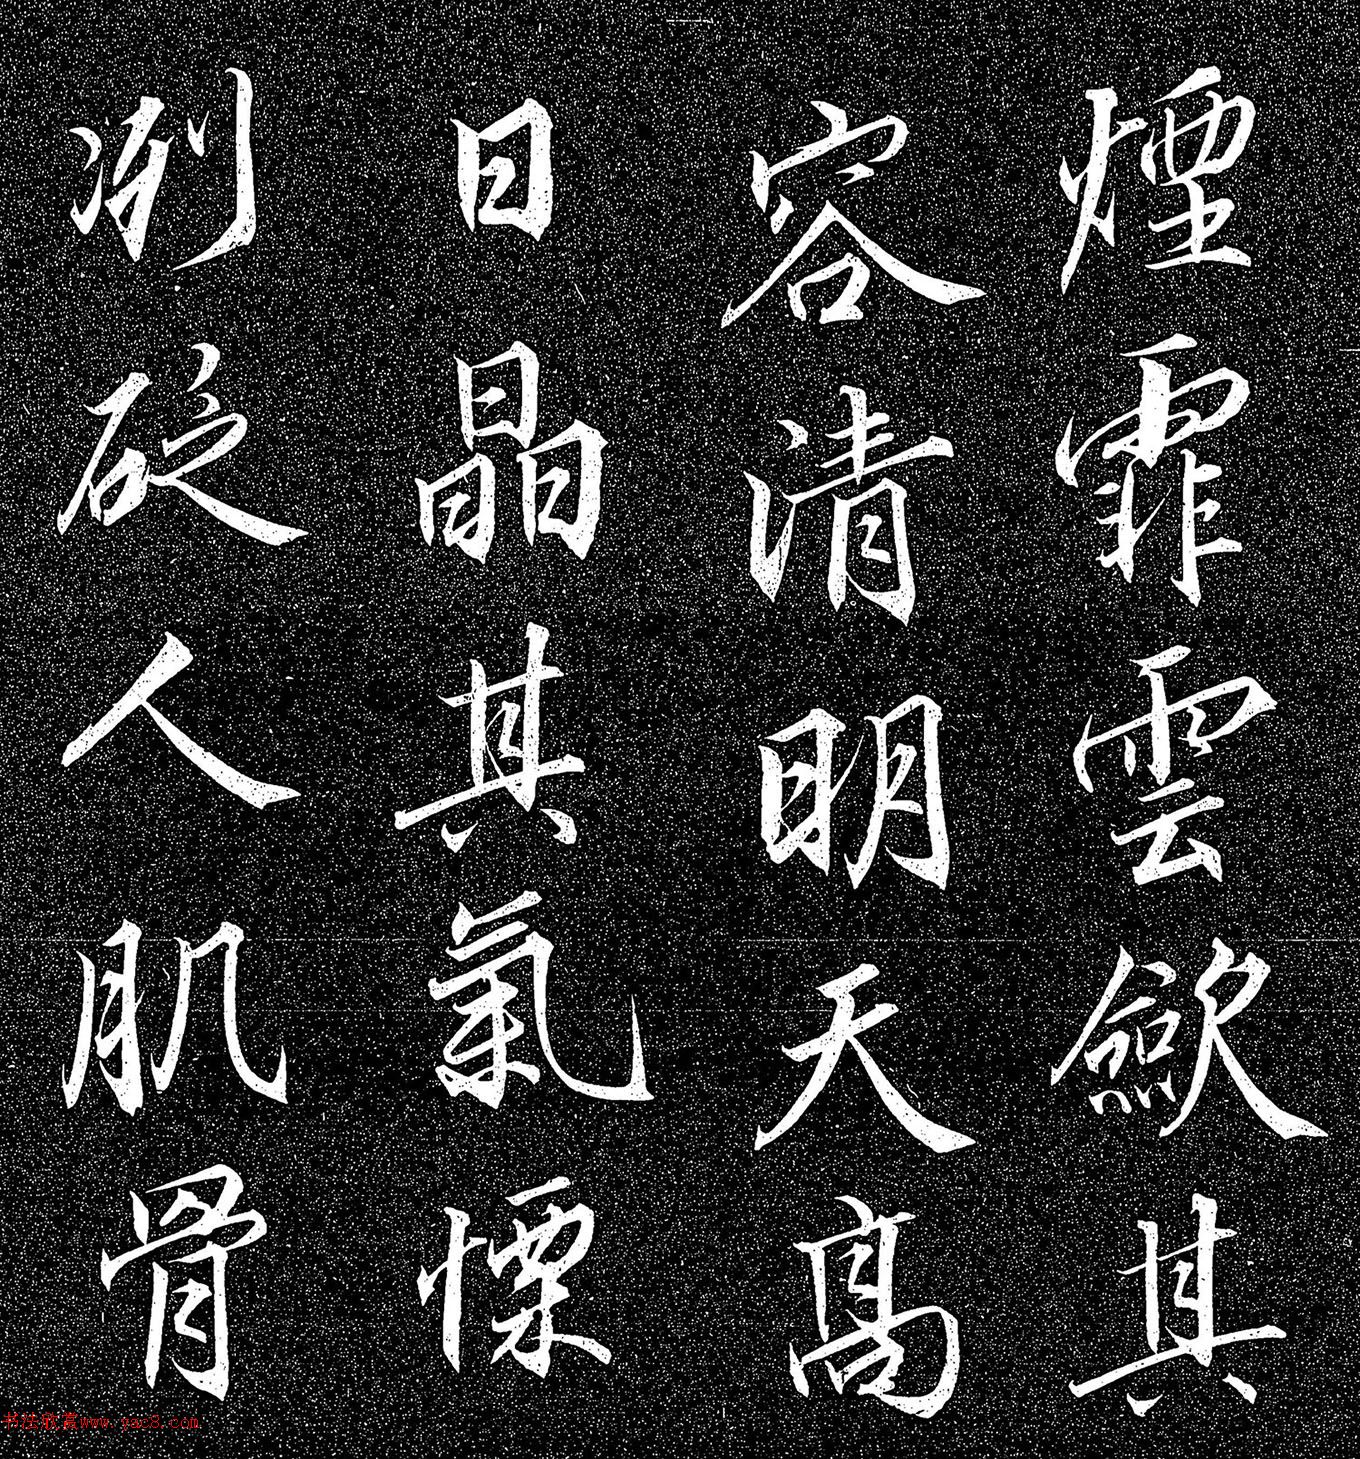 煙霏雲歛其
容清明天高
日晶其氣慄
冽砭人肌骨
书法欣赏www.yac8.com